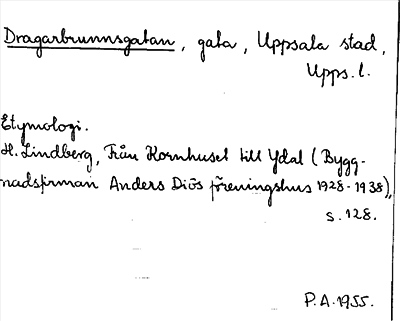 Dragarbrunnsgatan, gata, Uppsala stad,
Upps. l.
Etymologi.
H. Lindberg, Från Kornhuset till Ydal (Bygg-
nadsfirman Anders Diös föreningshus 1928-1938),
s. 128.
P.A. 1955.